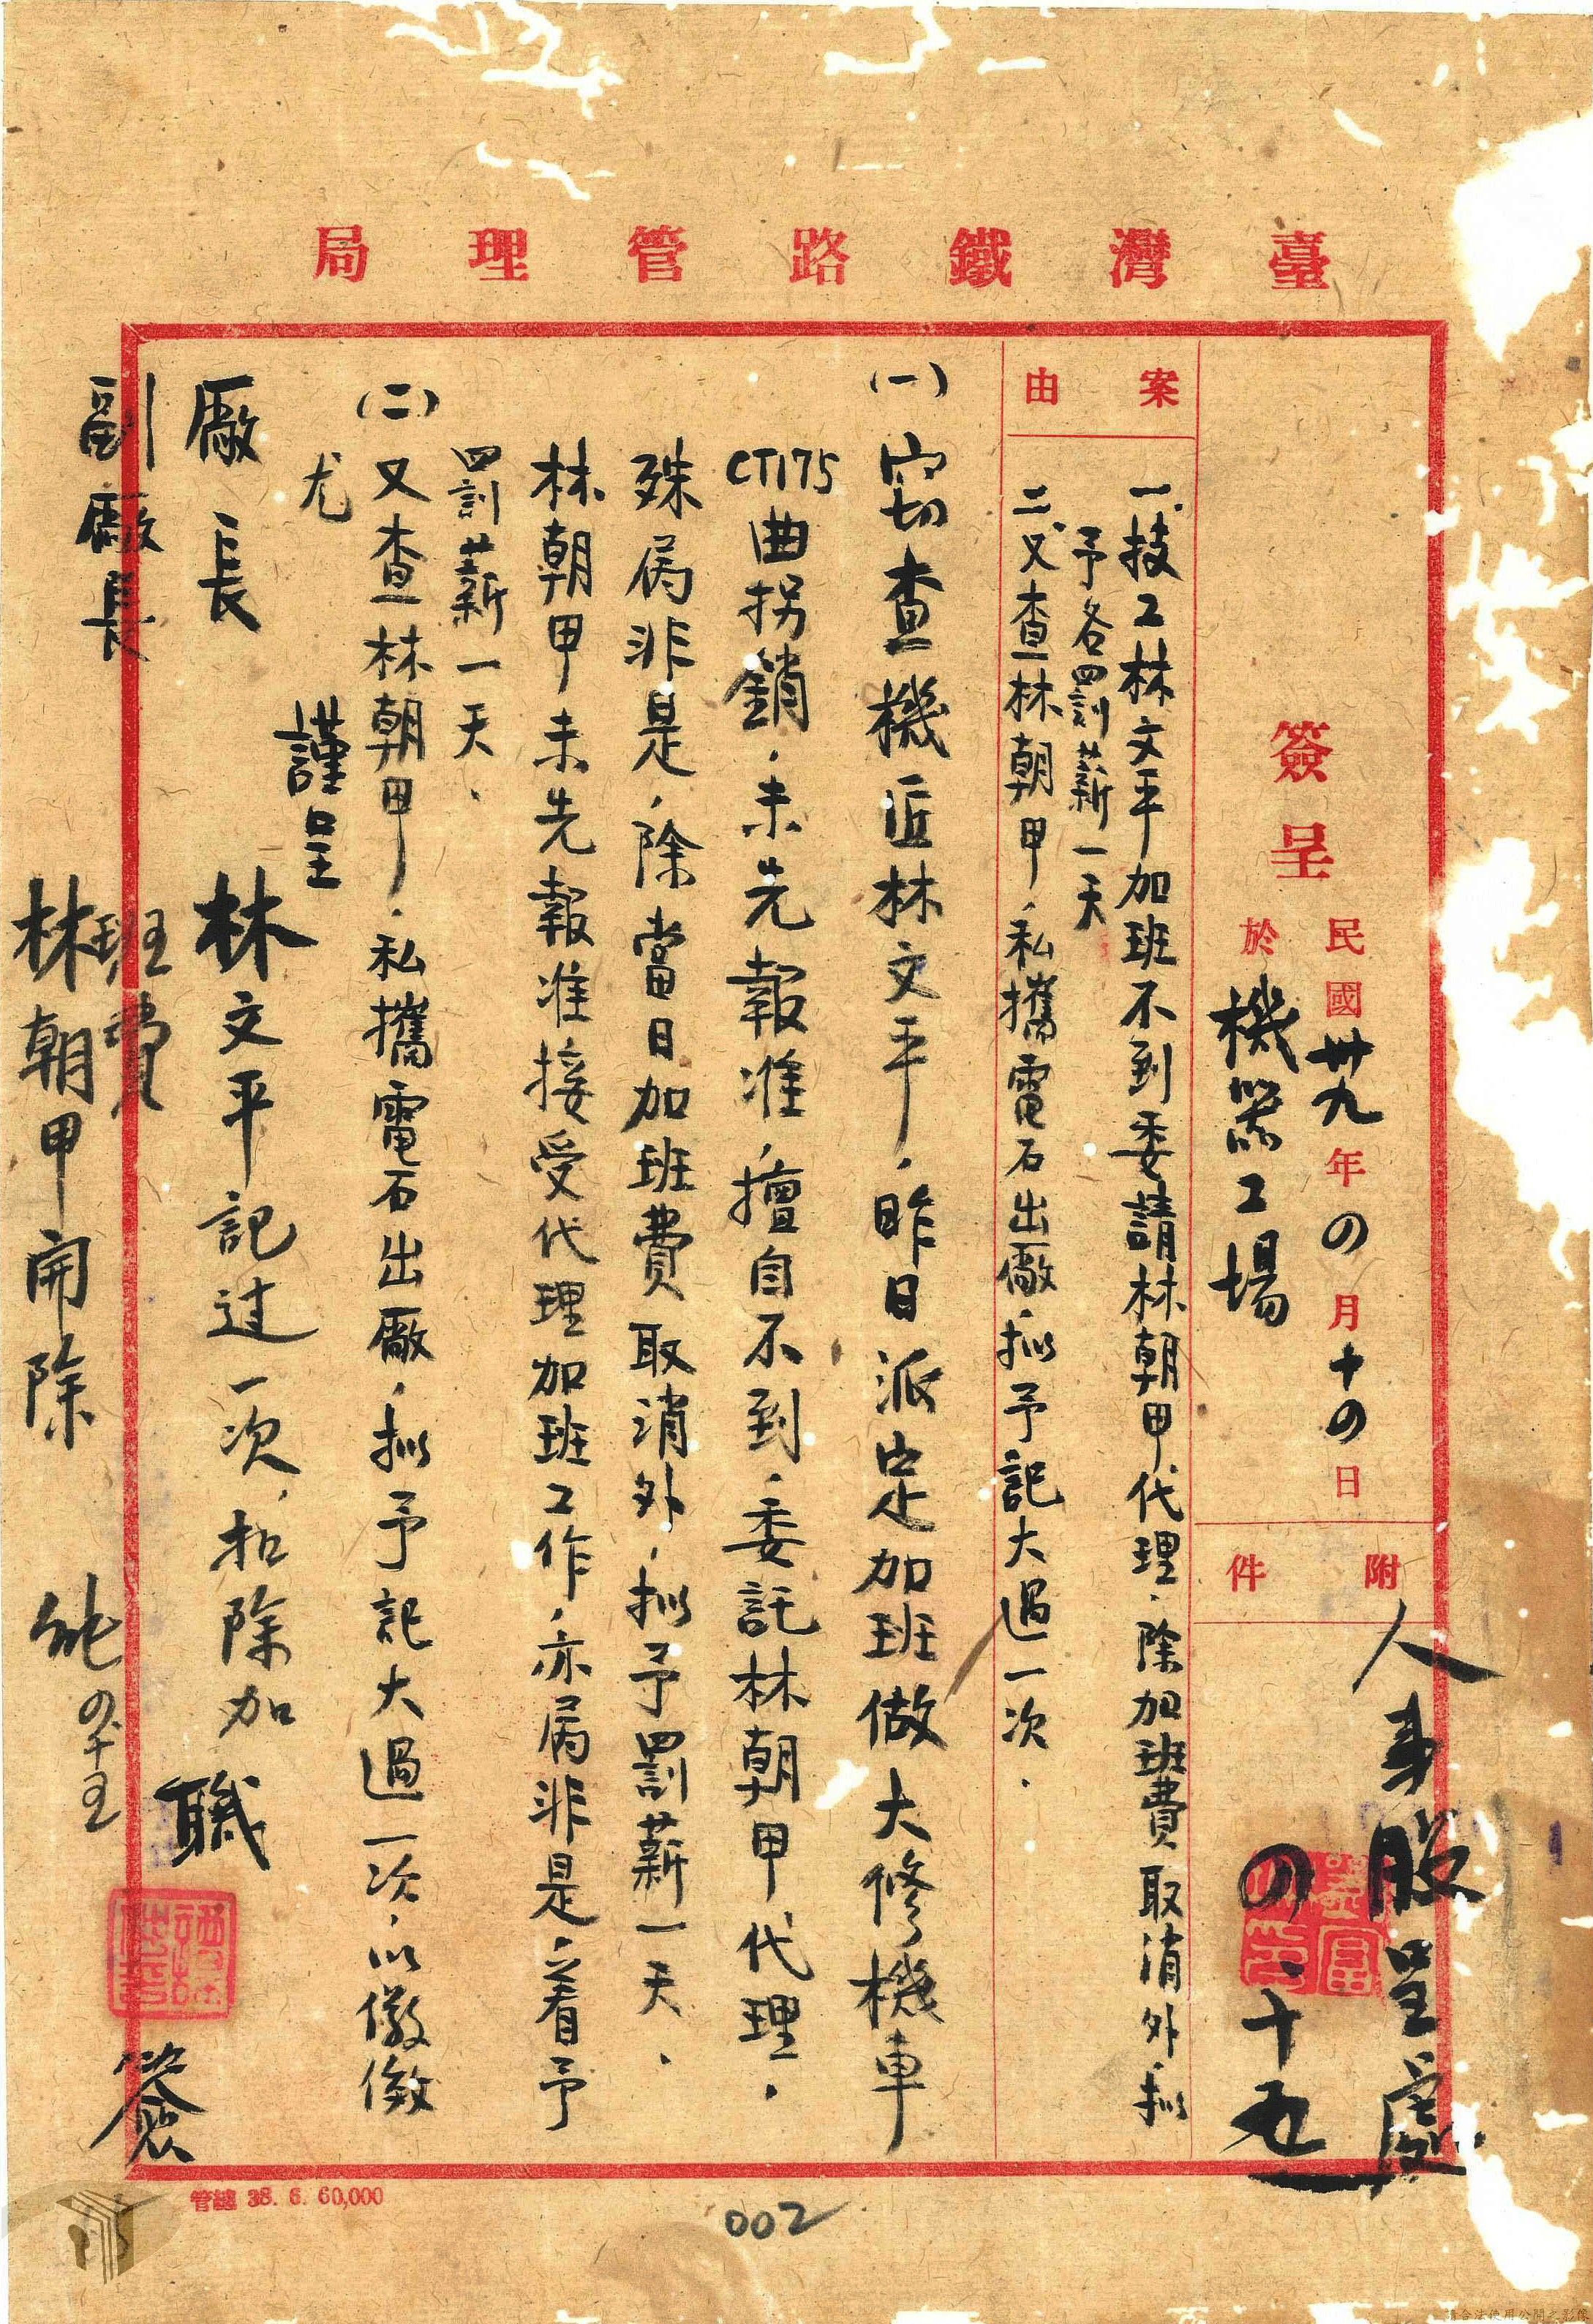 臺灣鐵路管理局
人事股呈處
附件
簽呈
民國卅九年の月十の日
於機器工場
の.十五
案由
一.技工林文平加班不到委請林朝甲代理.除加班費取消外.擬
予各罰薪一天
二.又查林朝甲.私攜電石出廠.擬予記大過一次.
(一)竊查機匠林文平.昨日派定加班做大修機車
CT175曲拐銷.未先報准.擅自不到.委託林朝甲代理.
殊屬非是.除當日加班費取消外.擬予罰薪一天.
林朝甲未先報准接受代理加班工作.亦屬非是.着予
罰薪一天.
(二)又查林朝甲.私攜電石出廠.擬予記大過一次.以儆傚
尤
謹呈
廠長
副廠長
職
簽
林文平記过一次.扣除加
班費
林朝甲開除
の.十五
管總 38. 6. 60,000
002